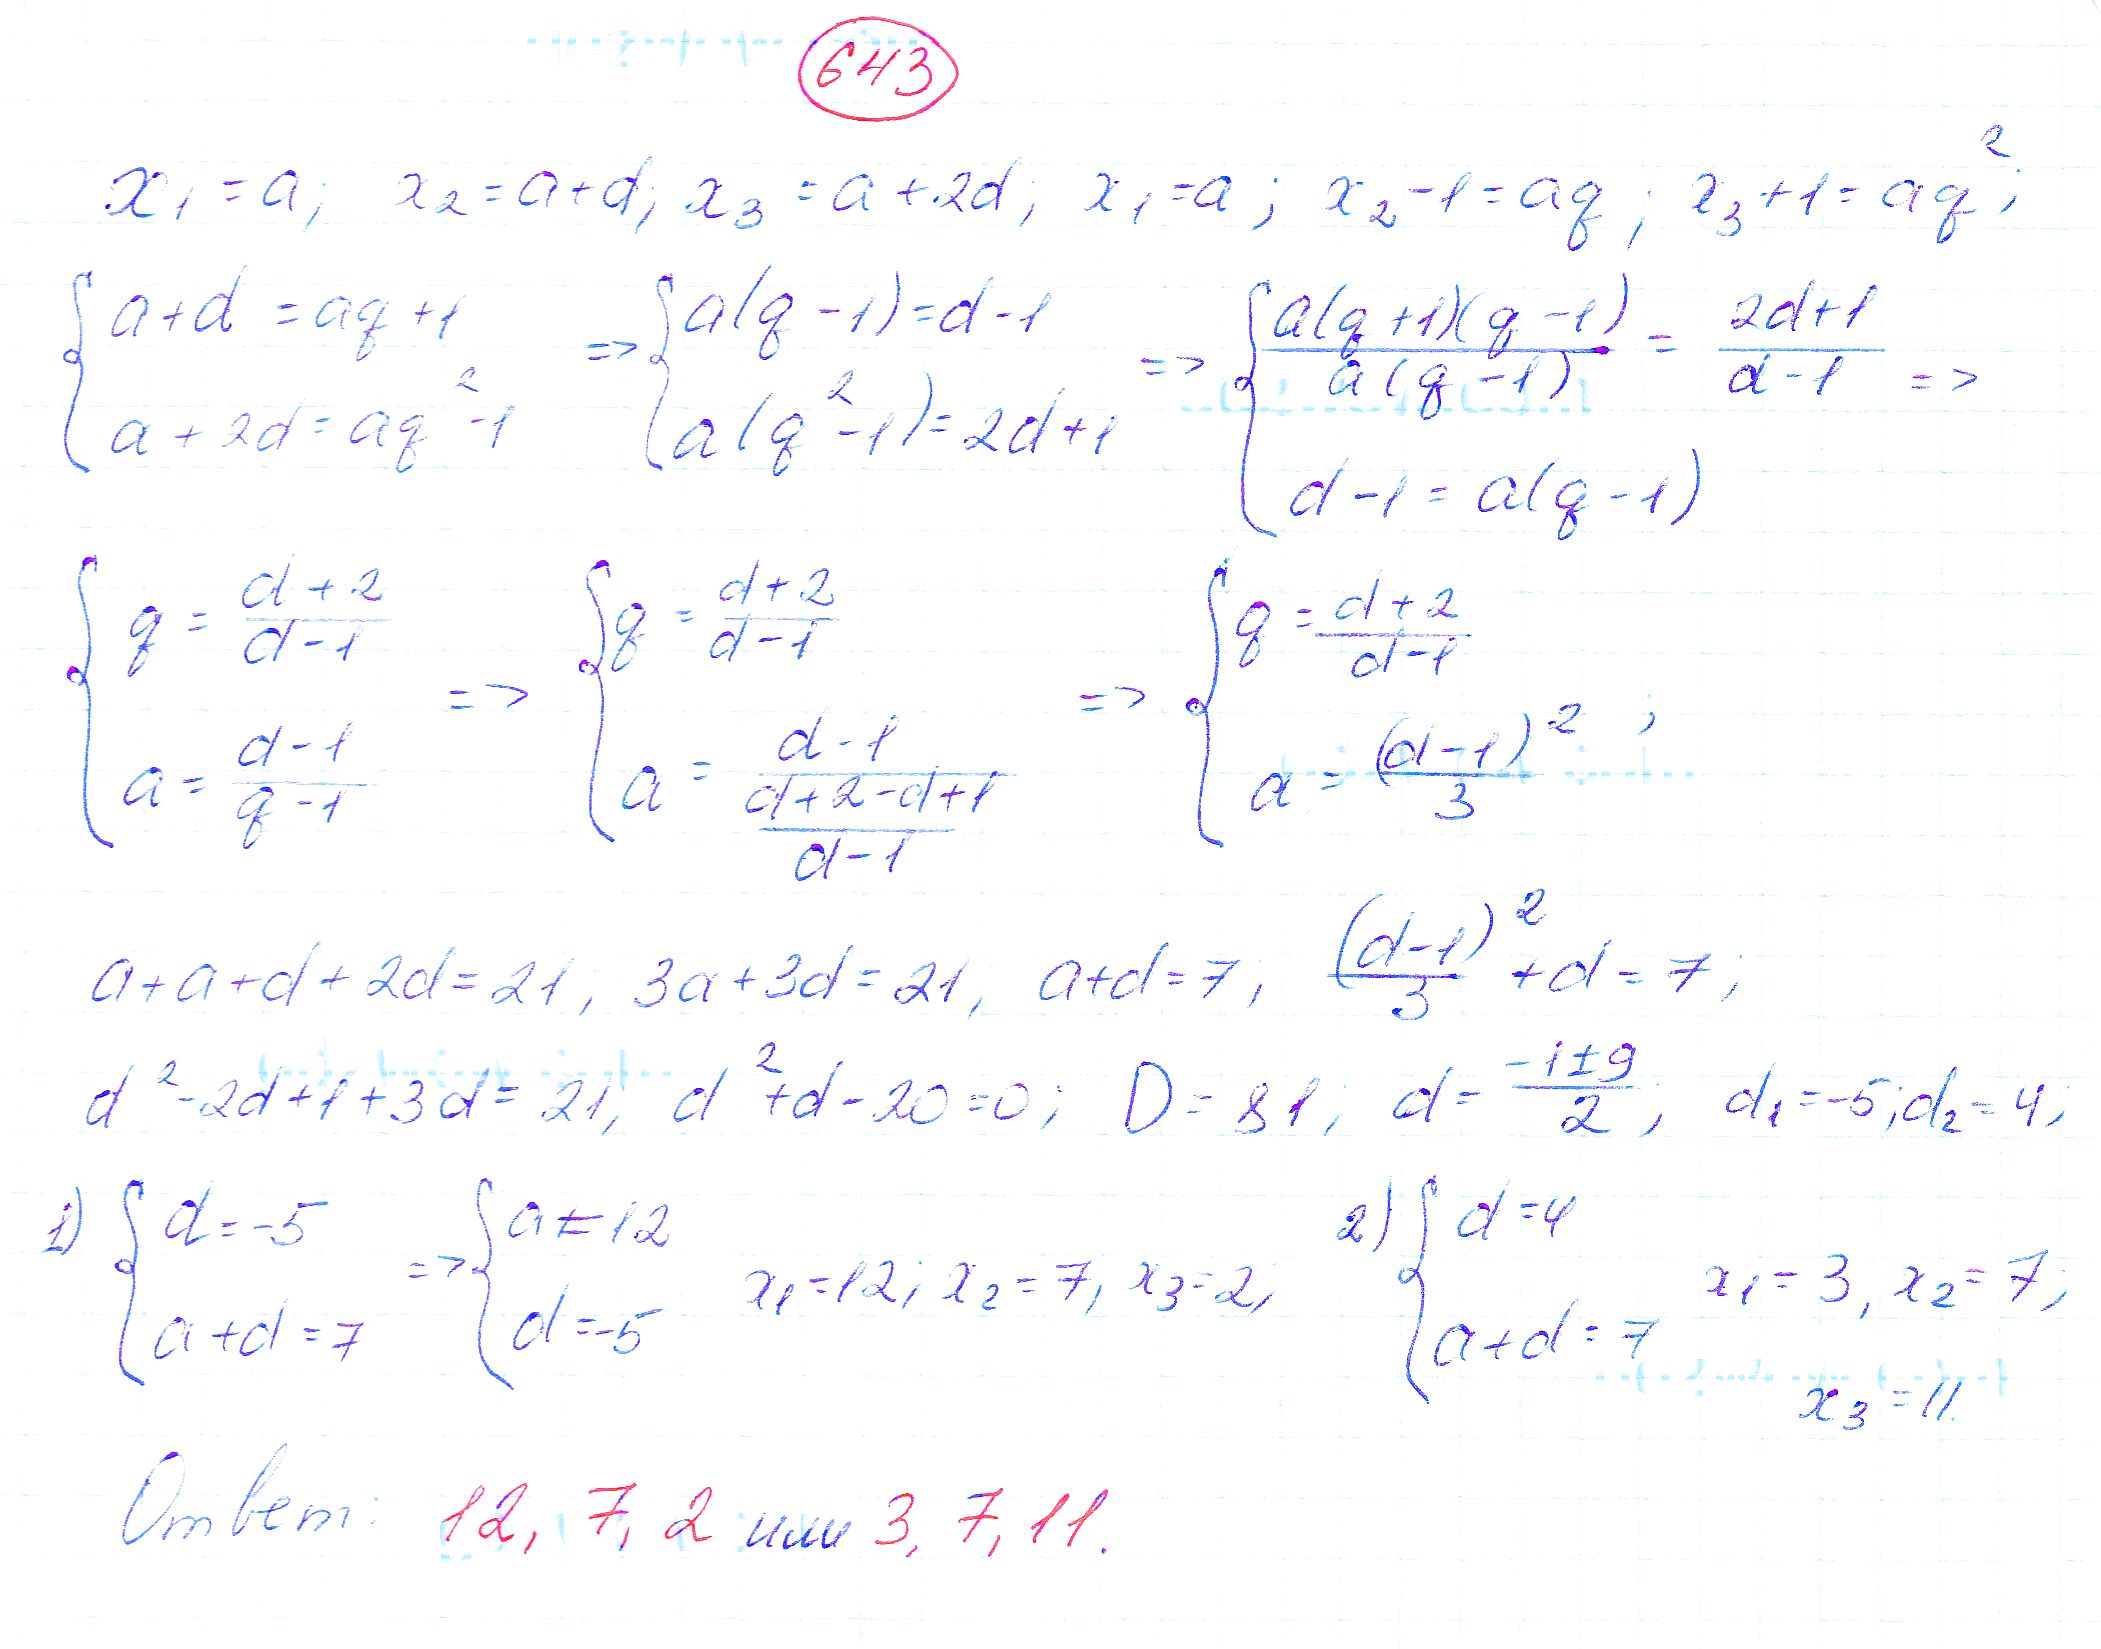 643
x₁ = a; x₂ = a+d; x₃ = a+2d; x₁ = a; x₂-1 = aq; x₃+1 = aq²;
{ a+d = aq+1; a+2d = aq²-1 => { a(q-1) = d-1; a(q²-1) = 2d+1 => { a(q+1)(q-1)/a(q-1) = (2d+1)/(d-1) => ; d-1 = a(q-1)
{ q = (d+2)/(d-1); a = (d-1)/(q-1) => { q = (d+2)/(d-1); a = (d-1)/((d+2-d+1)/(d-1)) => { q = (d+2)/(d-1); a = (d-1)²/3 ;
a+a+d+2d = 21; 3a+3d = 21; a+d = 7; (d-1)²/3 + d = 7;
d²-2d+1+3d = 21; d²+d-20 = 0; D = 81; d = (-1±9)/2; d₁ = -5; d₂ = 4;
1) { d = -5; a+d = 7 => { a = 12; d = -5 x₁ = 12; x₂ = 7; x₃ = 2; 2) { d = 4; a+d = 7 x₁ = 3, x₂ = 7;
x₃ = 11.
Ответ: 12, 7, 2 или 3, 7, 11.